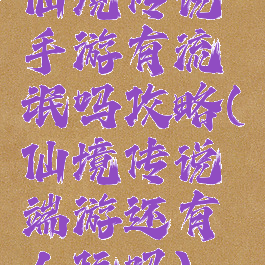 仙境传说
手游有流
氓吗攻略(
仙境传说
端游还有